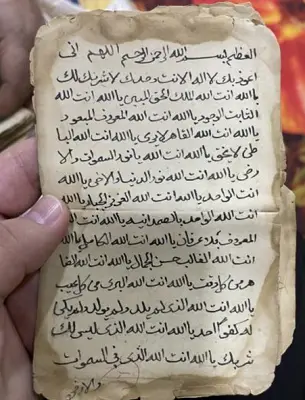 العظيم بسم الله الرحمن الرحيم اللهم انى
اعوذ بك لا اله الا انت وحدك لا شريك لك
يا الله انت الله الملك الحق المبين يا الله انت الله
الثابت الوجود يا الله انت الله المعروف المعبود
يا الله انت الله القاهر لا يرى يا الله انت الله البا
طن لا يخفى يا الله انت الله يا نور السموات والا
رض يا الله انت الله نور الدنيا والاخرى يا الله
انت الواحد يا الله انت الله العزيز الجبار يا الله
انت الله الواحد بالصمدانيه يا الله انت الله
المعروف بلا عرفان يا الله انت الله الكامل يا الله
انت الله الغالب حسن الجمال يا الله انت الله القا
هر من كل يا الله انت الله البرى من كل عيب
يا الله انت الله الذى لم يلد ولم يولد ولم يكن
له كفوا احد يا الله انت الله الذى ليس لك
شريك يا الله انت الله الذى فى السموات
والارض